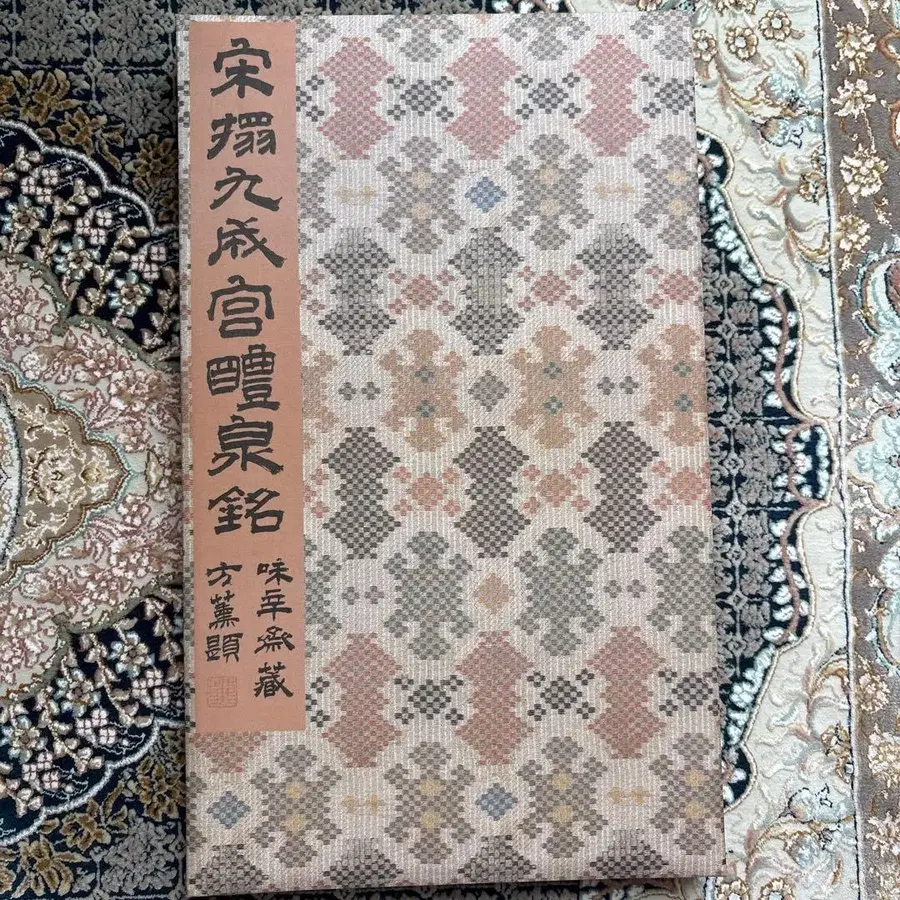 宋搨九成宮醴泉銘
味辛齋藏
方薰題